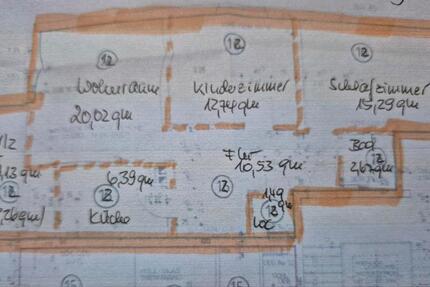 12
12
12
Wohnraum
20,02 qm
Kinderzimmer
12,74 qm
Schlafzimmer
15,29 qm
Flur
10,53 qm
Bad
12
2,67 qm
6,39 qm
12
Küche
12
1,49
qm
12
WC
12